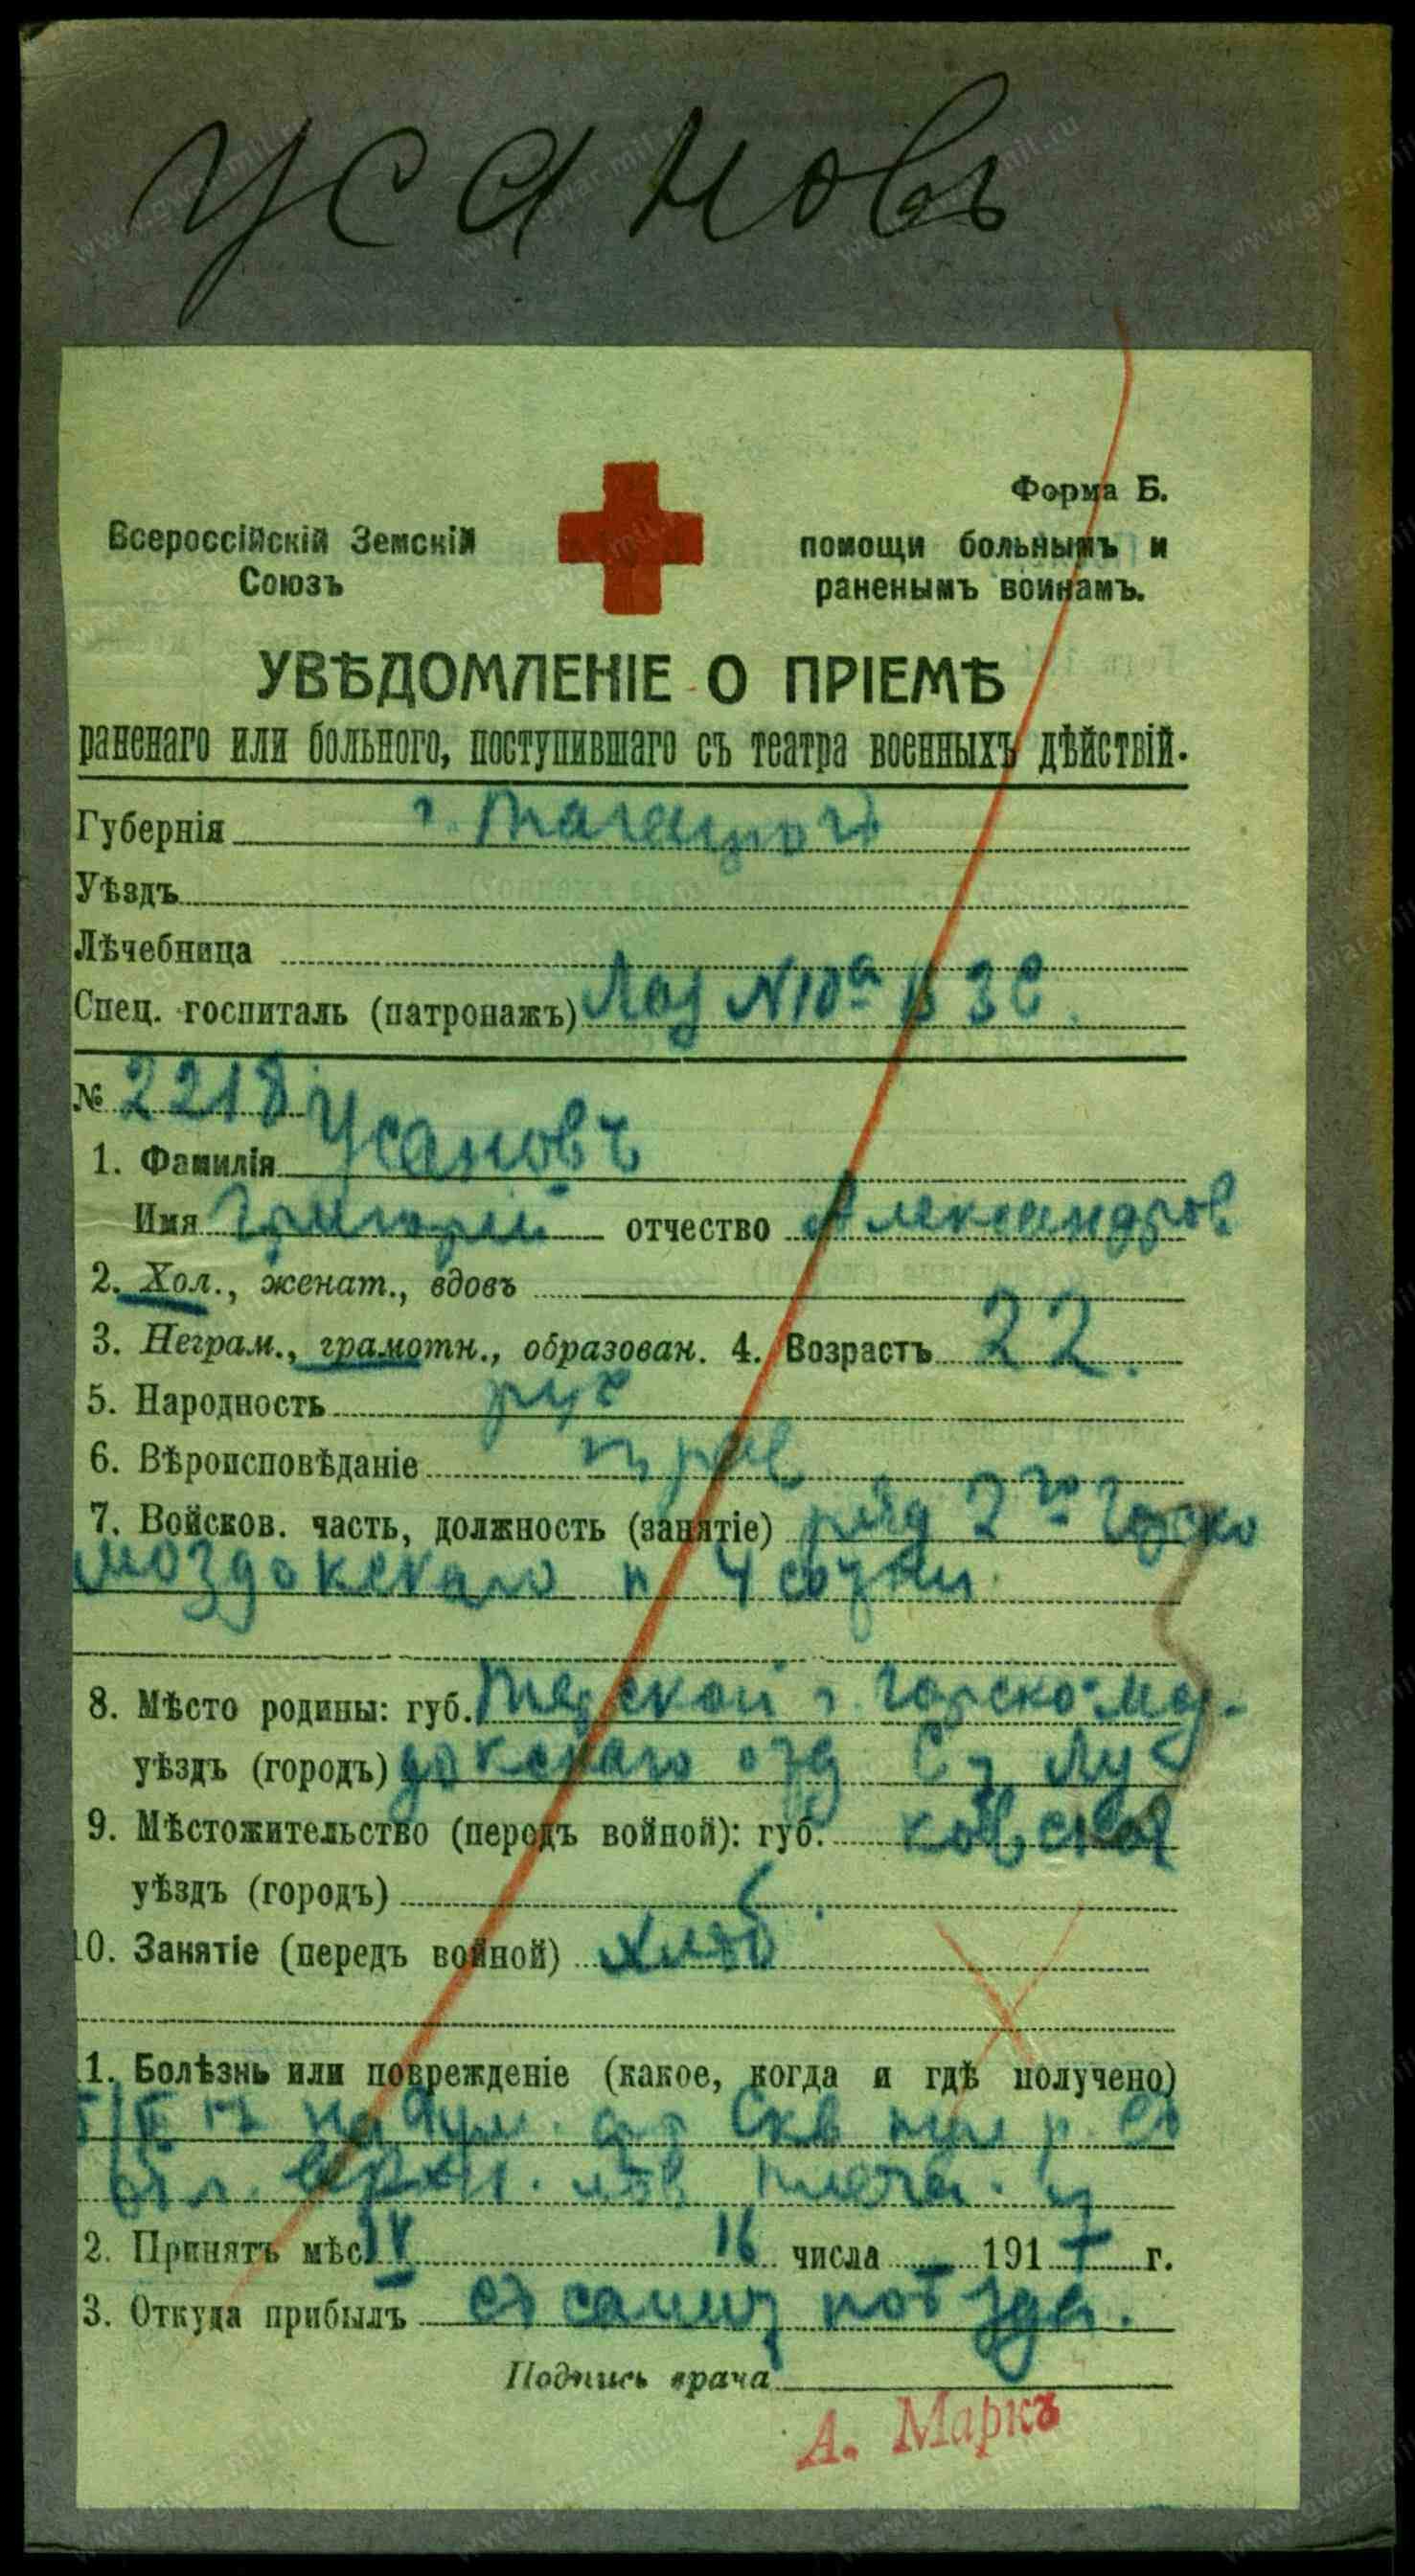 Усановъ
Форма Б.
Всероссійскій Земскій
Союзъ
помощи больнымъ и
раненымъ воинамъ.
УВѢДОМЛЕНІЕ О ПРІЕМѢ
раненаго или больного, поступившаго съ театра военныхъ дѣйствій.
Губернія г. Таганрогъ
Уѣздъ
Лѣчебница
Спец. госпиталь (патронажъ) Лаз N10а В З С.
№ 2218
1. Фамилія Усановъ
Имя Григорий отчество Александров
2. Хол., женат., вдовъ
3. Неграм., грамотн., образован. 4. Возрастъ 22.
5. Народность рус
6. Вѣроисповѣданіе прав
7. Войсков. часть, должность (занятіе) ряд 2го Горско
моздокскаго п 4 сотни
8. Мѣсто родины: губ. Терской Горско-Моз-
уѣздъ (городъ) докскаго отд Лу
9. Мѣстожительство (передъ войной): губ. ковская
уѣздъ (городъ)
10. Занятіе (передъ войной) хлѣб
1. Болѣзнь или поврежденіе (какое, когда и гдѣ получено)
на Рум. фр Скв пул р.
лѣв плеча.
2. Принятъ мѣс. IV 16 числа 1917 г.
3. Откуда прибылъ съ санит поѣзда.
Подпись врача
А. Маркъ
www.gwar.mil.ru